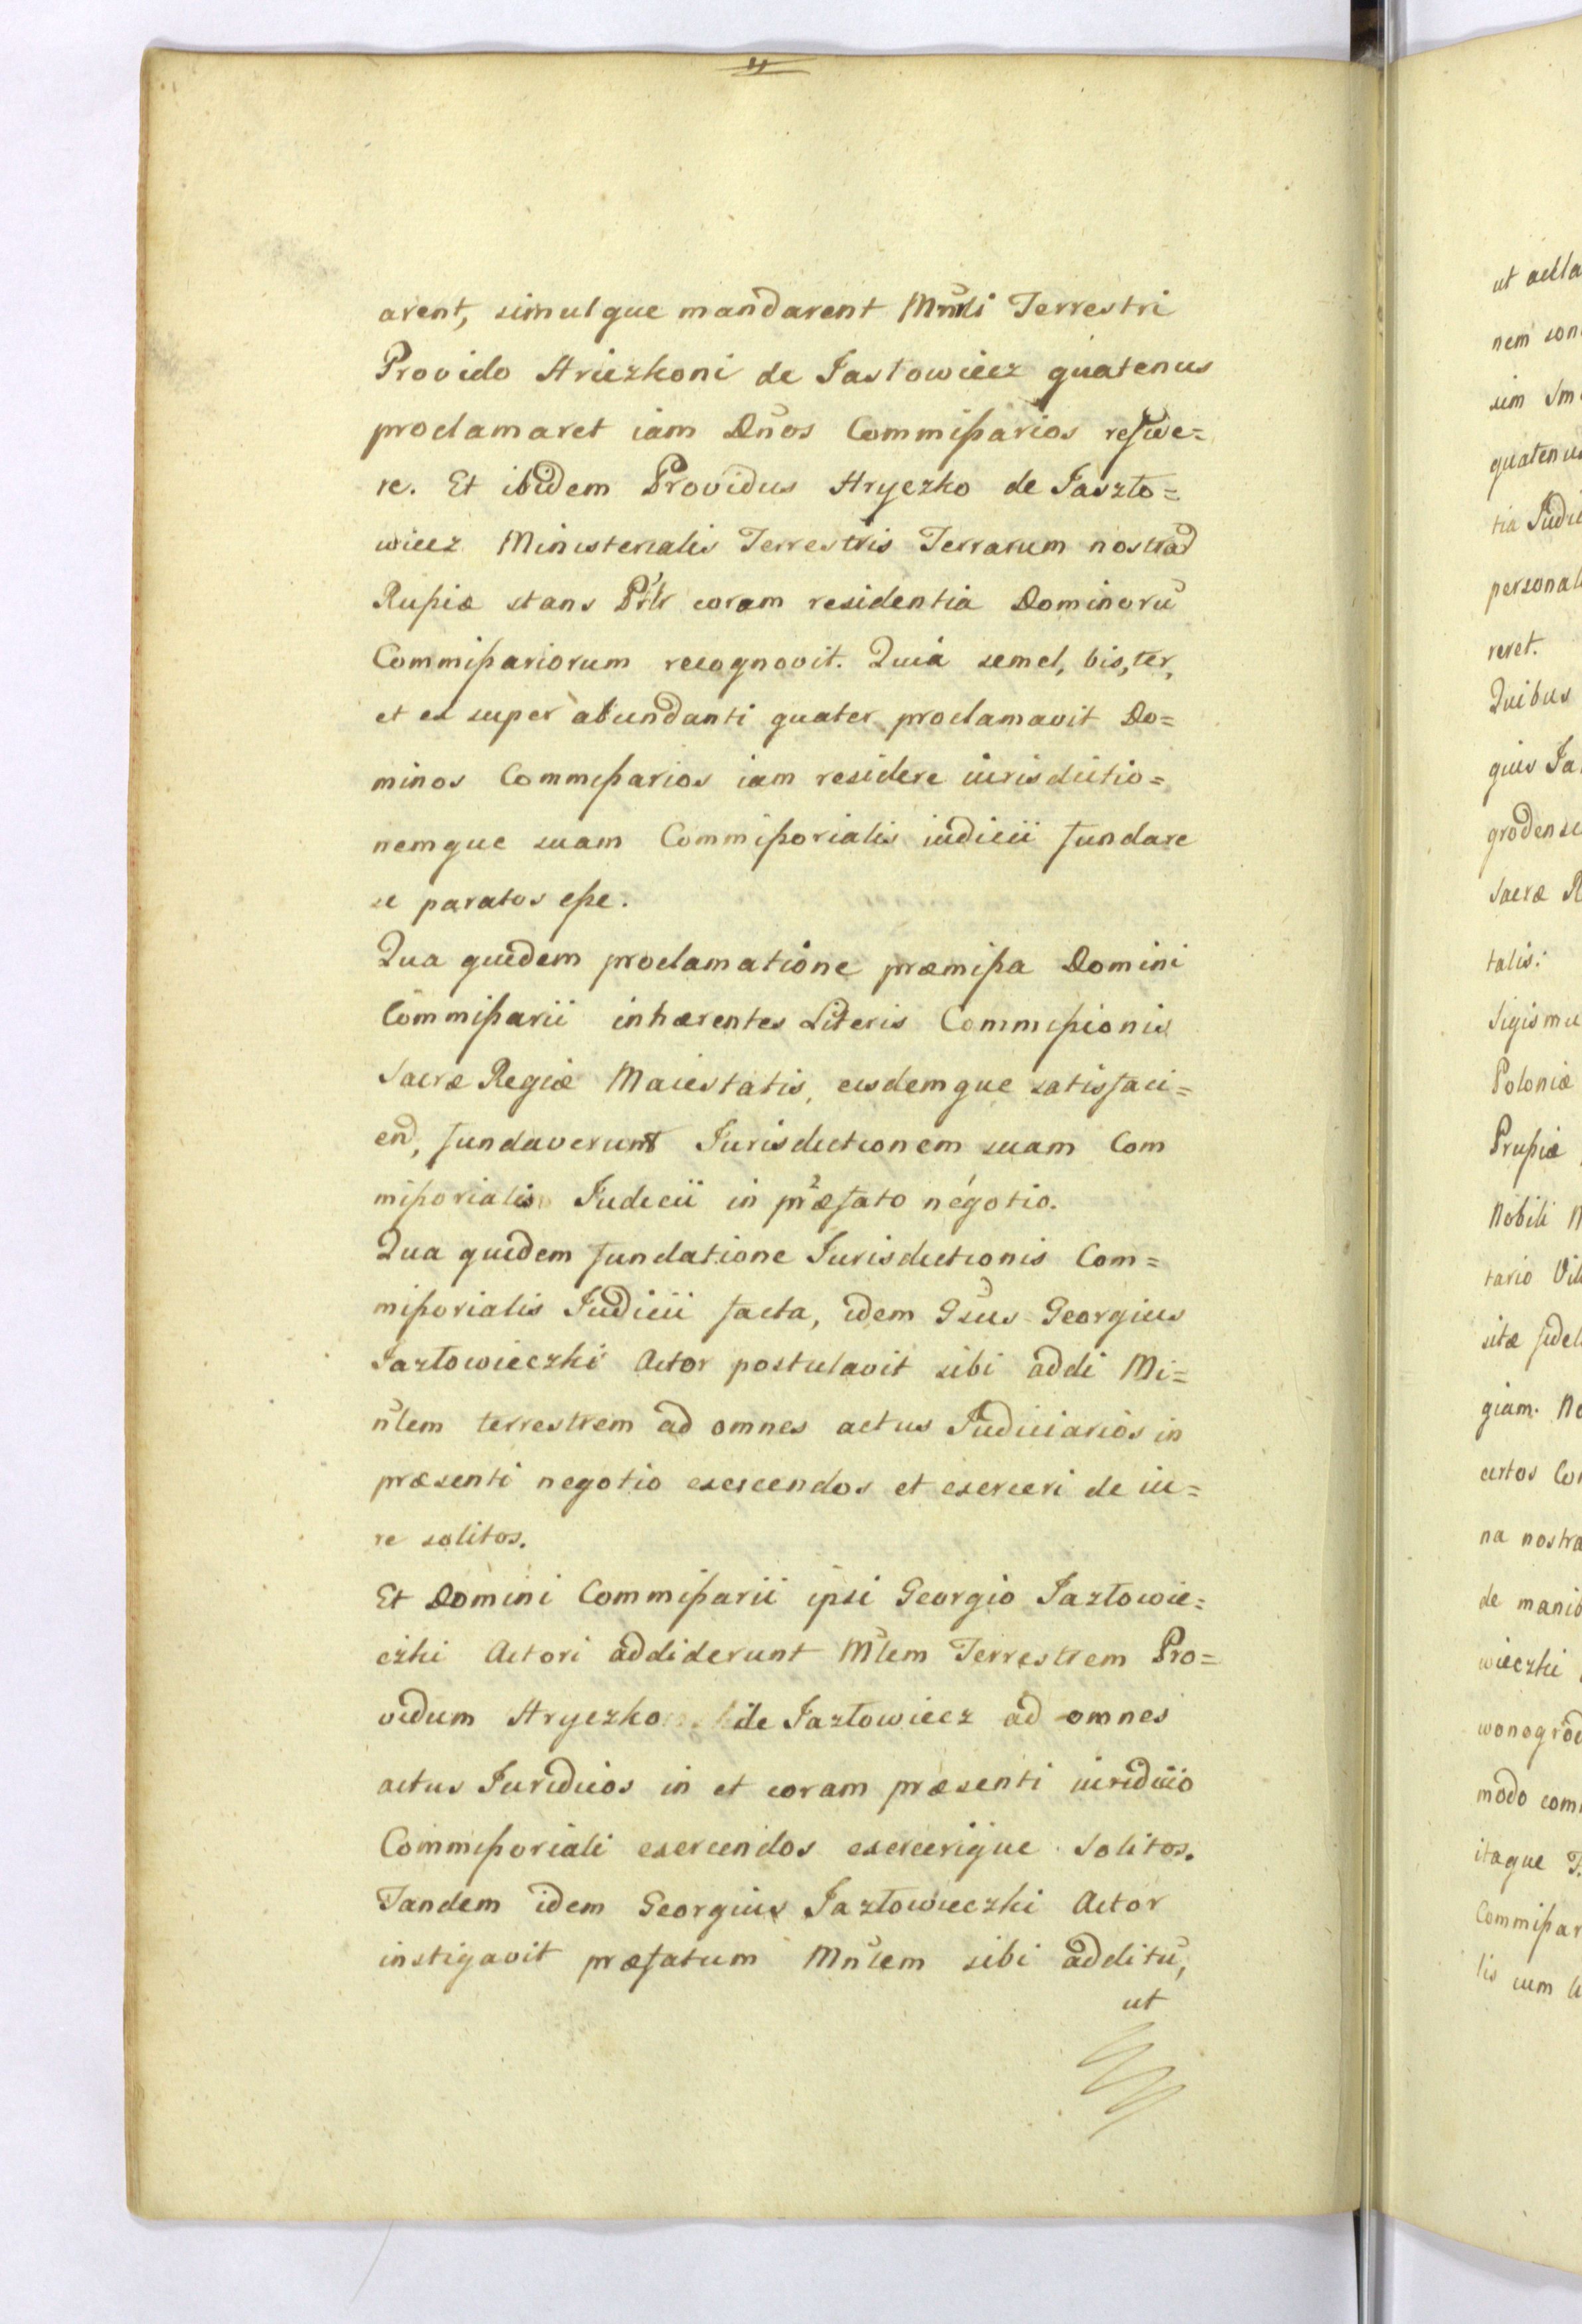 arent, simulque mandarent Mnrli Terrestri
Provido Hriczkoni de Jastowiecz quatenus
proclamaret iam Dnos Commißarios
re. Et ibidem Providus Hryczko de Jaszto=
wiecz Ministerialis Terrestris Terrarum nostrad
Rußiæ stans Prlr coram residentia Dominoru
Commißariorum recognovit. Quia semel, bis, ter,
et ex super abundanti quater proclamavit Do=
minos Commißarios iam residere iurisdictio=
nemque suam Commißorialis iudicii fundare
se paratos eße.
Qua quidem proclamatione præmißa Domini
Commißarii inhærentes Literis Commißionis
Sacræ Regiæ Maiestatis, eisdemque satisfaci=
end, fundaverunt Jurisdictionem suam Com
mißorialis Judicii in præfato negotio.
Qua quidem fundatione Jurisdictionis Com=
mißorialis Judicii facta, idem Gsus Georgius
Jazłowieczki Actor postulavit sibi addi Mi=
nlem terrestrem ad omnes actus Judiciarios in
præsenti negotio exercendos et exerceri de iu=
re solitos.
Et Domini Commißarii ipsi Georgio Jazłowie=
czki Actori addiderunt Mlem Terrestrem Pro=
vidum Hryczko de Jazłowiecz ad omnes
actus Juridicos in et coram præsenti iuridicio
Commißoriali exercendos exercerique solitos.
Tandem idem Georgius Jazłowieczki Actor
instigavit præfatum Mnlem sibi additu,
ut
ut
nem
sim
quatenus
tia
personal
reret.
Quibus
gius
grodense
Sacræ R
talis:
Sigismu
Poloniæ
Prußiæ
Nobili
tario
sitæ
giam.
certos
na nostra
de
wieczki
modo
itaque
Commißar
lis cum